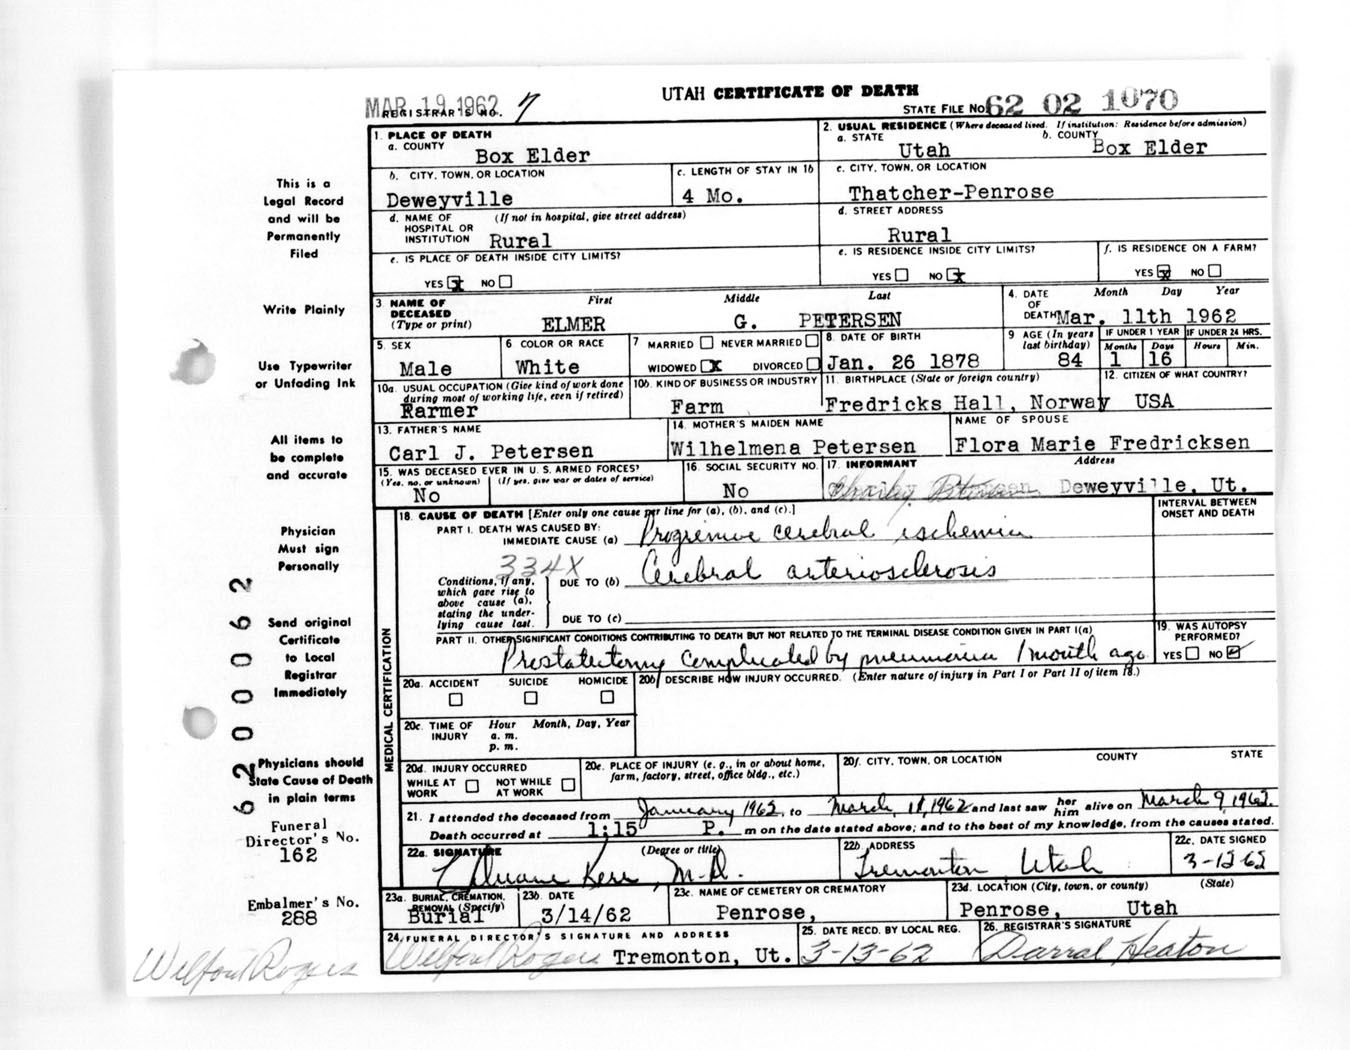 UTAH CERTIFICATE OF DEATH
MAR 19 1962
REGISTRAR'S NO. 7
STATE FILE NO. 62 02 1070
1. PLACE OF DEATH
a. COUNTY
Box Elder
2. USUAL RESIDENCE (Where deceased lived. If institution: Residence before admission)
a. STATE
Utah
b. COUNTY
Box Elder
b. CITY, TOWN, OR LOCATION
Deweyville
c. LENGTH OF STAY IN 1b
4 Mo.
c. CITY, TOWN, OR LOCATION
Thatcher-Penrose
d. NAME OF HOSPITAL OR INSTITUTION
(If not in hospital, give street address)
Rural
d. STREET ADDRESS
Rural
e. IS PLACE OF DEATH INSIDE CITY LIMITS?
YES x NO
e. IS RESIDENCE INSIDE CITY LIMITS?
YES NO x
f. IS RESIDENCE ON A FARM?
YES x NO
3 NAME OF DECEASED
(Type or print)
First Middle Last
ELMER G. PETERSEN
4. DATE OF DEATH
Month Day Year
Mar. 11th 1962
5. SEX
Male
6 COLOR OR RACE
White
7 MARRIED NEVER MARRIED
WIDOWED X DIVORCED
8. DATE OF BIRTH
Jan. 26 1878
9 AGE (In years last birthday)
84
IF UNDER 1 YEAR
Months Days
1 16
IF UNDER 24 HRS.
Hours Min.
10a. USUAL OCCUPATION (Give kind of work done during most of working life, even if retired)
Farmer
10b. KIND OF BUSINESS OR INDUSTRY
Farm
11. BIRTHPLACE (State or foreign country)
Fredricks Hall, Norway
12. CITIZEN OF WHAT COUNTRY?
USA
13. FATHER'S NAME
Carl J. Petersen
14. MOTHER'S MAIDEN NAME
Wilhelmena Petersen
NAME OF SPOUSE
Flora Marie Fredricksen
15. WAS DECEASED EVER IN U.S. ARMED FORCES?
(Yes, no, or unknown) (If yes, give war or dates of service)
No
16. SOCIAL SECURITY NO.
No
17. INFORMANT Address
Charley Petersen Deweyville, Ut.
18. CAUSE OF DEATH [Enter only one cause per line for (a), (b), and (c).]
INTERVAL BETWEEN ONSET AND DEATH
PART I. DEATH WAS CAUSED BY:
IMMEDIATE CAUSE (a) Progressive cerebral ischemia
334X
Conditions, if any, which gave rise to above cause (a), stating the underlying cause last.
DUE TO (b) Cerebral arteriosclerosis
DUE TO (c)
PART II. OTHER SIGNIFICANT CONDITIONS CONTRIBUTING TO DEATH BUT NOT RELATED TO THE TERMINAL DISEASE CONDITION GIVEN IN PART I(a)
Prostatectomy complicated by pneumonia 1 month ago
19. WAS AUTOPSY PERFORMED?
YES NO
MEDICAL CERTIFICATION
20a. ACCIDENT SUICIDE HOMICIDE
20b. DESCRIBE HOW INJURY OCCURRED. (Enter nature of injury in Part I or Part II of item 18.)
20c. TIME OF INJURY
Hour Month, Day, Year
a. m.
p. m.
20d. INJURY OCCURRED
WHILE AT WORK NOT WHILE AT WORK
20e. PLACE OF INJURY (e. g., in or about home, farm, factory, street, office bldg., etc.)
20f. CITY, TOWN, OR LOCATION COUNTY STATE
21. I attended the deceased from January 1962, to March, 11, 1962 and last saw her him alive on March 9, 1962.
Death occurred at 1:15 P. m on the date stated above; and to the best of my knowledge, from the causes stated.
22a. SIGNATURE (Degree or title)
Duane Kerr, M.D.
22b ADDRESS
Tremonton Utah
22c. DATE SIGNED
3-12-62
23a. BURIAL, CREMATION, REMOVAL (Specify)
Burial
23b. DATE
3/14/62
23c. NAME OF CEMETERY OR CREMATORY
Penrose,
23d. LOCATION (City, town, or county) (State)
Penrose, Utah
24. FUNERAL DIRECTOR'S SIGNATURE AND ADDRESS
Welford Rogers Tremonton, Ut.
25. DATE RECD. BY LOCAL REG.
3-13-62
26. REGISTRAR'S SIGNATURE
Darral Heaton
This is a
Legal Record
and will be
Permanently
Filed
Write Plainly
Use Typewriter
or Unfading Ink
All items to
be complete
and accurate
Physician
Must sign
Personally
Send original
Certificate
to Local
Registrar
Immediately
Physicians should
State Cause of Death
in plain terms
Funeral
Director's No.
162
Embalmer's No.
288
Welford Rogers
62000062